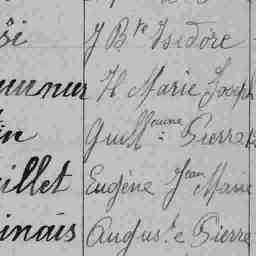 J Bte Isidore
H Marie Joseph
in Guillaume Pierre
illet Eugène Jean Marie
inais Auguste Pierre